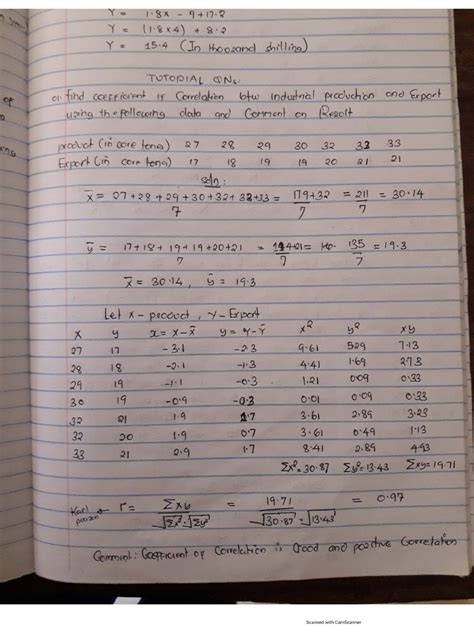 Y = 1.8x - 9+17.2
Y = (1.8x4) + 8.2
Y = 15.4 (In thousand shilling)
TUTORIAL QNs:
find coefficient of Correlation btw Industrial production and Export
using the following data and Comment on Result
product (in core tones) 27 28 29 30 32 32 33
Export (in core tones) 17 18 19 19 20 21 21
Soln:
x̄ = 27+28+29+30+32+32+33 = 179+32 = 211 = 30.14
7 7 7
ȳ = 17+18+19+19+20+21 = 114+21 = 135 = 19.3
7 7 7
x̄ = 30.14, ȳ = 19.3
Let x - product, y - Export
X y x = X-X̄ y = Y-Ȳ x² y² xy
27 17 -3.1 -2.3 9.61 5.29 7.13
28 18 -2.1 -1.3 4.41 1.69 2.73
29 19 -1.1 -0.3 1.21 0.09 0.33
30 19 -0.9 -0.3 0.01 0.09 0.33
32 21 1.9 1.7 3.61 2.89 3.23
32 20 1.9 0.7 3.61 0.49 1.13
33 21 2.9 1.7 8.41 2.89 4.93
Σx² = 30.87 Σy² = 13.43 Σxy = 19.71
Karl pearson r = Σxy = 19.71 = 0.97
√Σx² √Σy² √30.87 √13.43
Comment: Coefficient of Correlation is Good and positive Correlation
Scanned with CamScanner